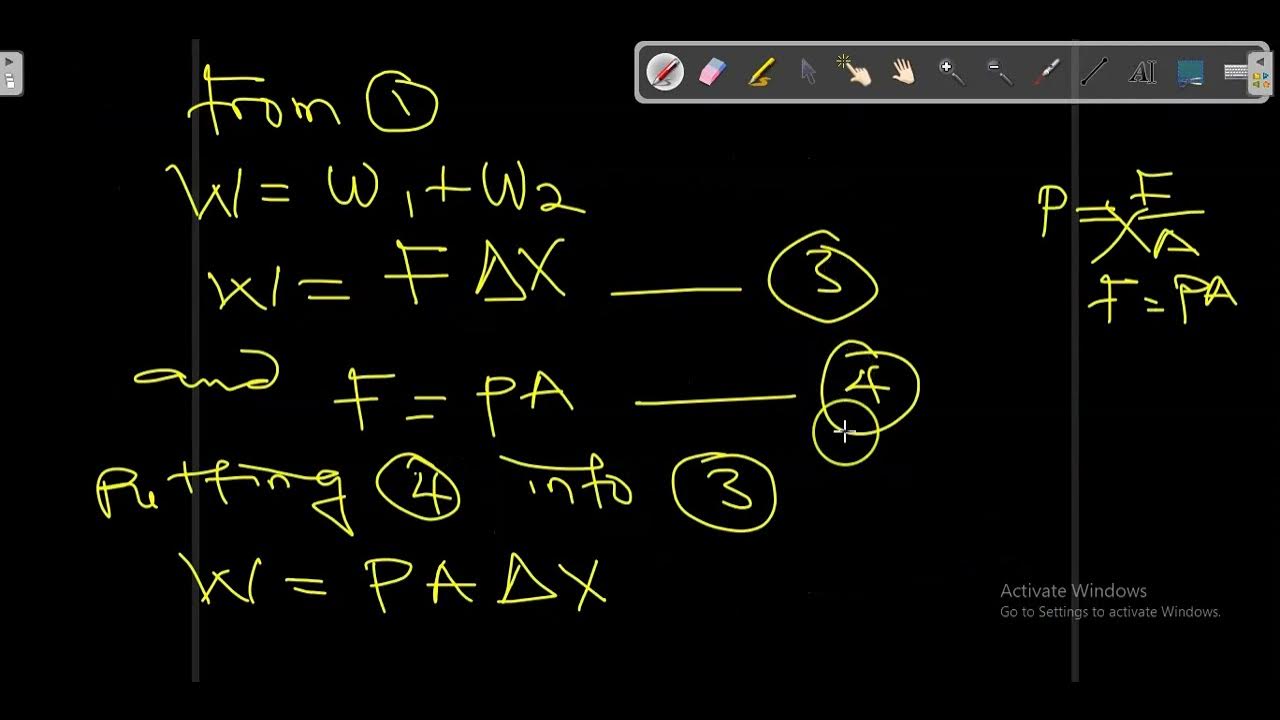 from ①
W = W1 + W2
W = F ΔX —— ③
and F = PA —— ④
Putting ④ into ③
W = P A ΔX
P = F/A
F = PA
AI
Activate Windows
Go to Settings to activate Windows.